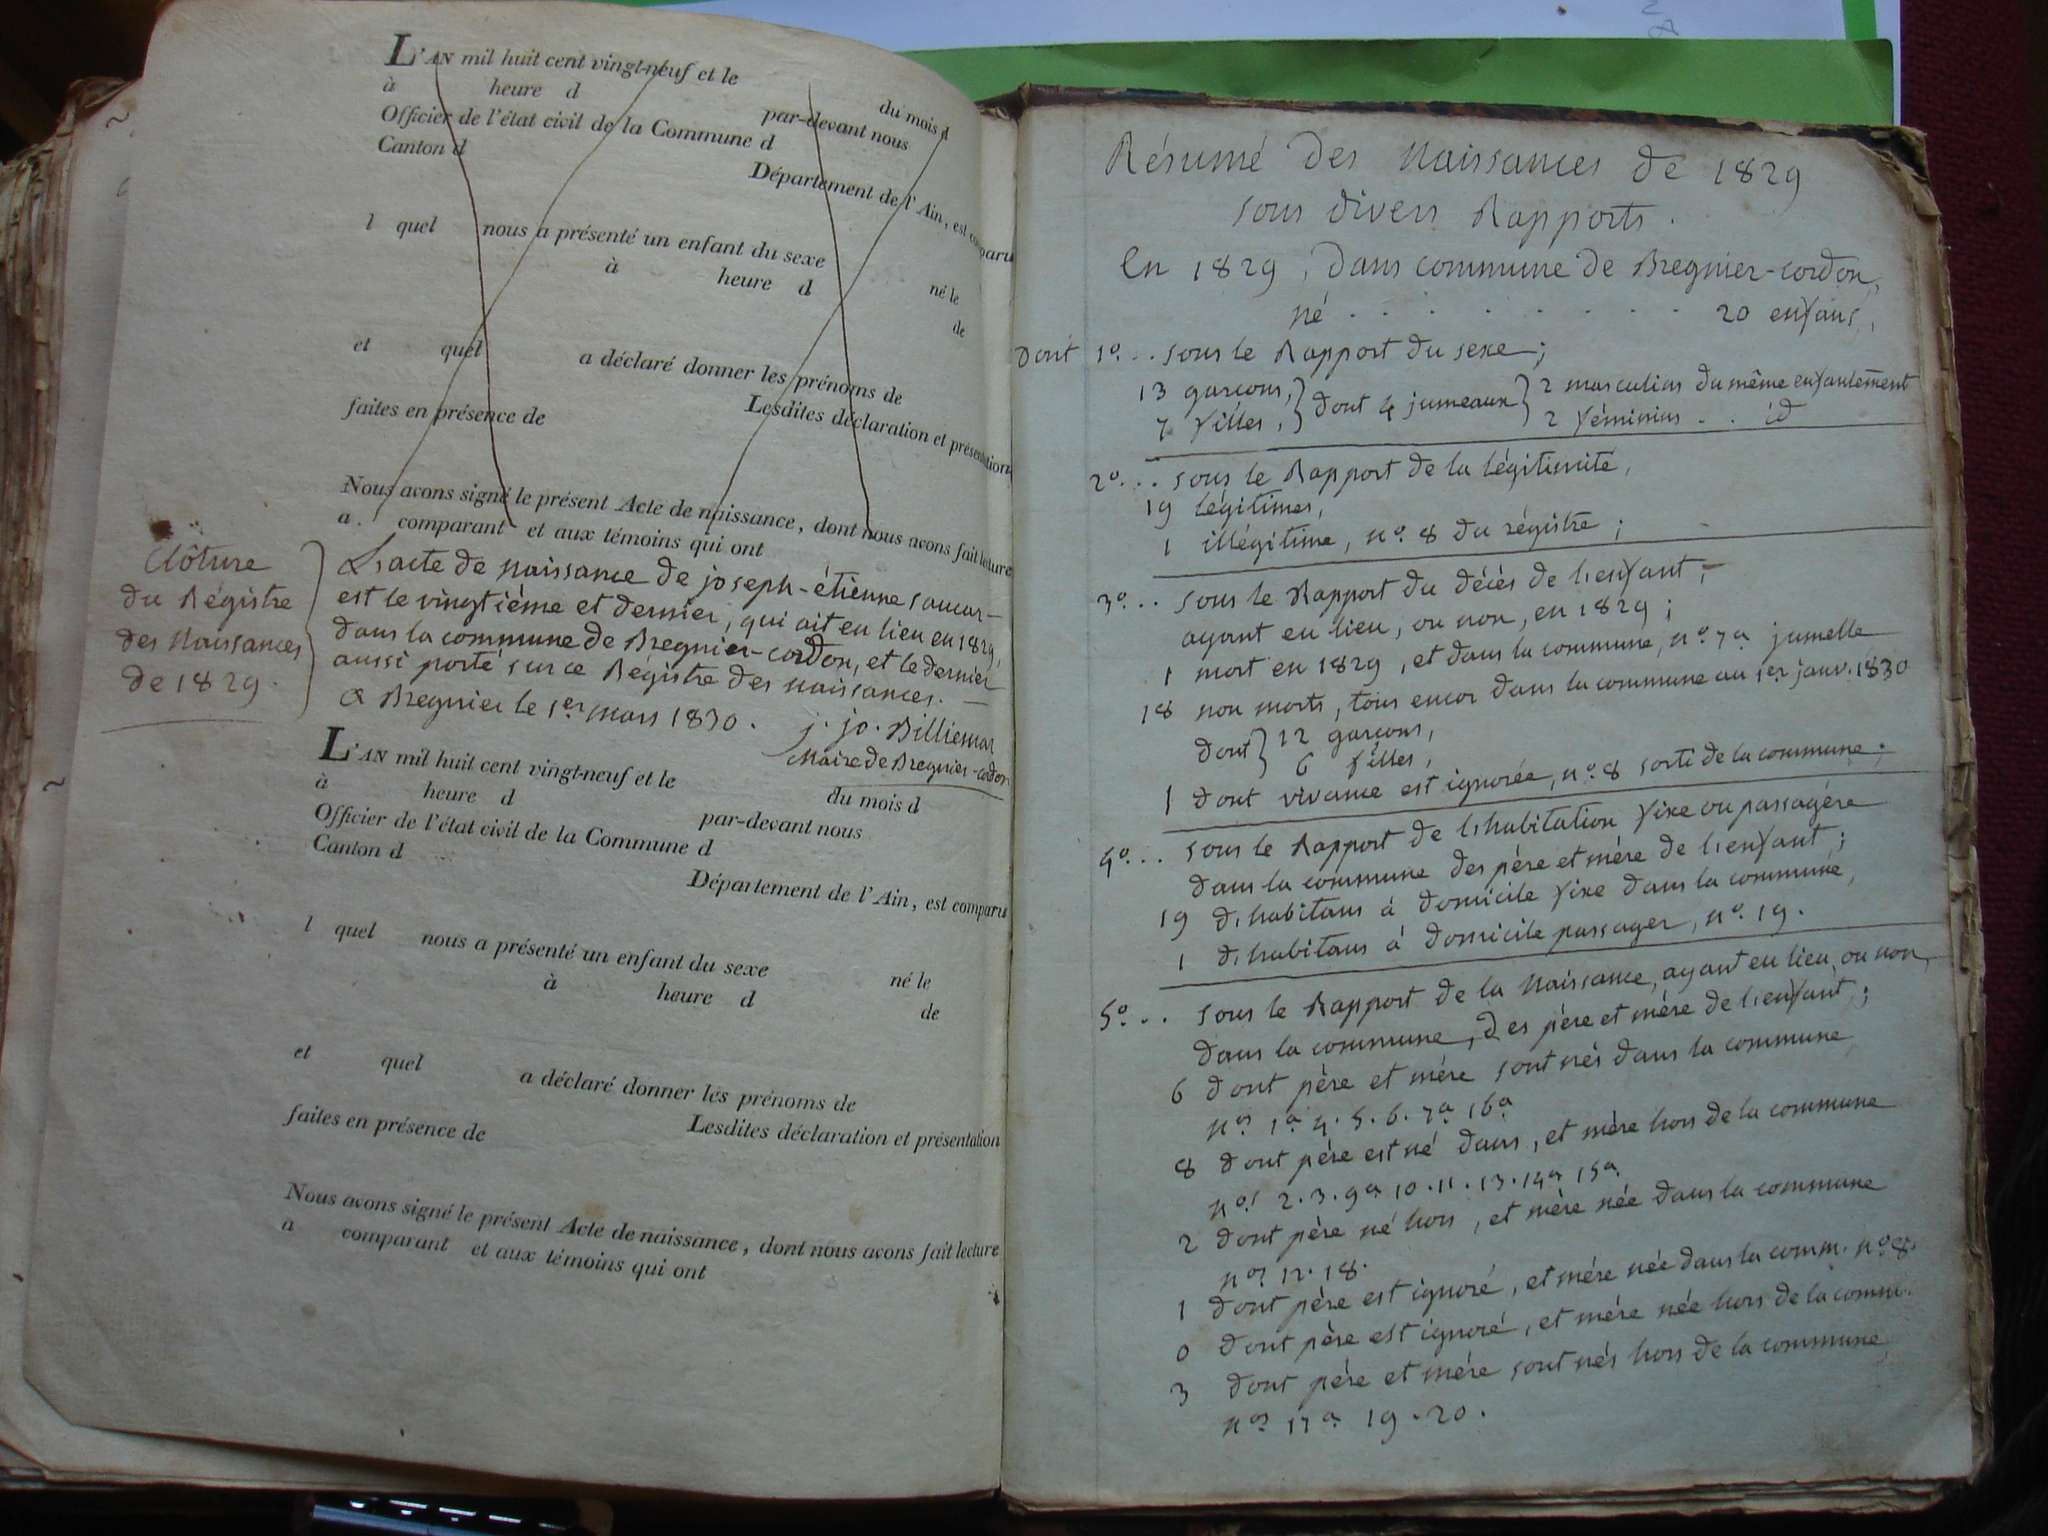 L'AN mil huit cent vingt-neuf et le du mois d
à heure d par-devant nous
Officier de l'état civil de la Commune d
Canton d Département de l'Ain, est comparu
l quel nous a présenté un enfant du sexe né le
à heure d de
et quel a déclaré donner les prénoms de
Lesdites déclaration et présentation
faites en présence de
Nous avons signé le présent Acte de naissance, dont nous avons fait lecture
a. comparant et aux témoins qui ont
Clôture
du Régistre
des Naissances
de 1829.
L'acte de naissance de joseph-étienne
est le vingtième et dernier, qui ait eu lieu en 1829,
dans la commune de Bregnier-cordon, et le dernier
aussi porté sur ce Régistre des naissances.
a Bregnier le 1er mars 1830. j. jo. Billiemaz
Maire de Bregnier-cordon
L'AN mil huit cent vingt-neuf et le du mois d
à heure d par-devant nous
Officier de l'état civil de la Commune d
Canton d
Département de l'Ain, est comparu
l quel nous a présenté un enfant du sexe né le
à heure d de
et quel a déclaré donner les prénoms de
Lesdites déclaration et présentation
faites en présence de
Nous avons signé le présent Acte de naissance, dont nous avons fait lecture
a comparant et aux témoins qui ont
Résumé des Naissances de 1829
sous divers Rapports.
En 1829, dans commune de Bregnier-cordon,
né . . . . . . . . . 20 enfans,
dont 1º... sous le Rapport du sexe;
13 garçons, } dont 4 jumeaux } 2 masculins du même enfantement
7 filles, } 2 féminins . . id
2º... sous le Rapport de la légitimité,
19 légitimes,
1 illégitime, nº. 8 du régistre;
3º... sous le Rapport du décès de l'enfant,
ayant eu lieu, ou non, en 1829;
1 mort en 1829, et dans la commune, nº. 7a jumelle
18 non morts, tous encor dans la commune au 1er janv. 1830
dont } 12 garçons,
6 filles,
1 dont vivance est ignorée, nº. 8 sorti de la commune.
4º... sous le Rapport de l'habitation fixe ou passagère
dans la commune des père et mère de l'enfant;
19 d'habitans à domicile fixe dans la commune,
1 d'habitans à domicile passager, nº. 19.
5º... sous le Rapport de la Naissance, ayant eu lieu, ou non,
dans la commune, des père et mère de l'enfant;
6 dont père et mère sont nés dans la commune
nos 1a 4. 5. 6. 7a 16a
8 dont père est né dans, et mère hors de la commune
nos 2. 3. 9a 10. 11. 13. 14a 15a.
2 dont père né hors, et mère née dans la commune
nos 12. 18.
1 dont père est ignoré, et mère née dans la comm. nº. 8.
0 dont père est ignoré, et mère née hors de la comm.
3 dont père et mère sont nés hors de la commune
nos 17a 19. 20.